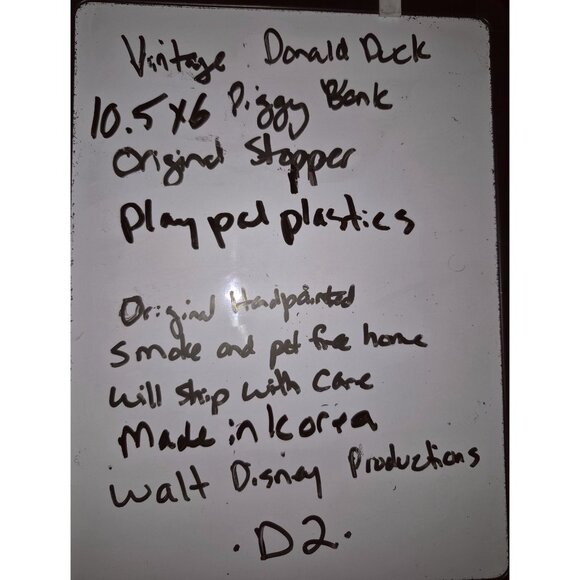 Vintage Donald Duck
10.5x6 Piggy Bank
Original Stopper
Play pal plastics
Original Handpainted
Smoke and pet free home
Will ship with care
Made in Korea
Walt Disney Productions
.D2.